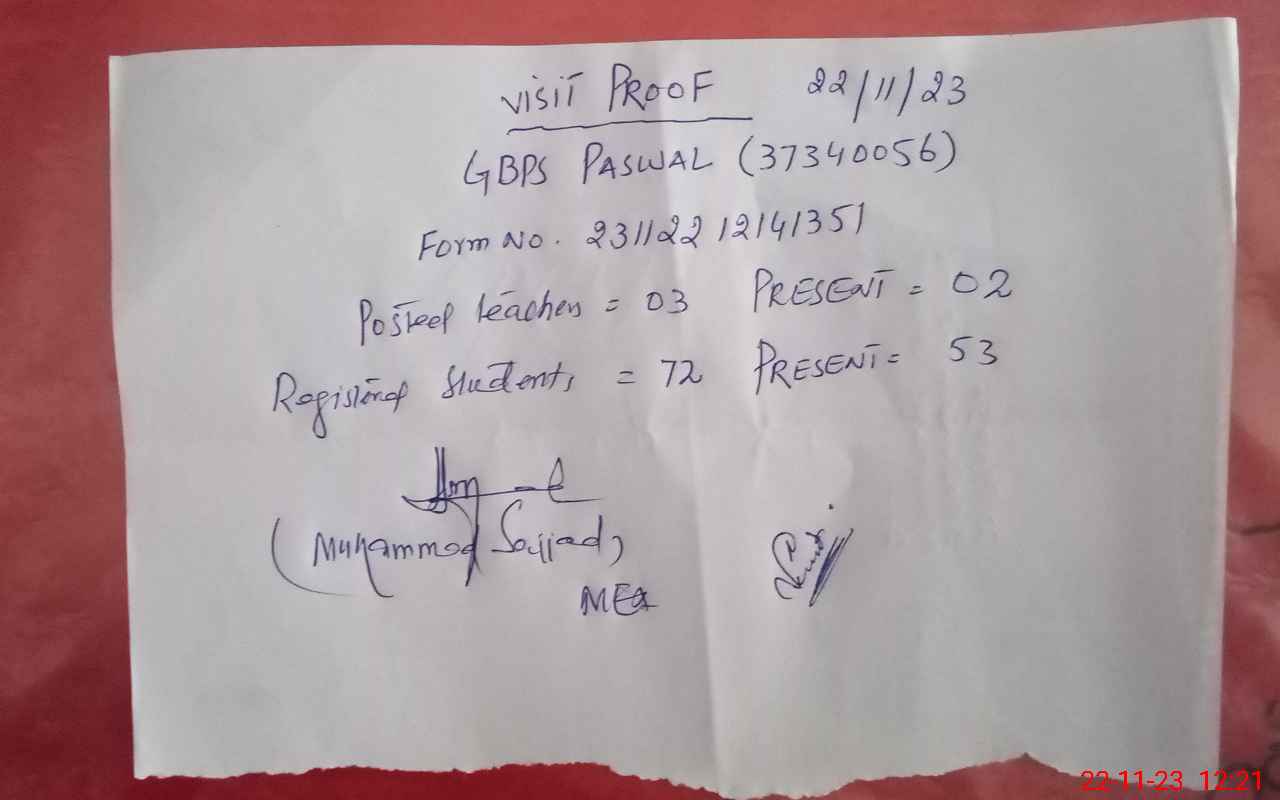 VISIT PROOF 22/11/23
GBPS PASWAL (37340056)
Form No. 23112212141351
Posted teachers = 03 PRESENT = 02
Registered students = 72 PRESENT = 53
(Muhammad Sajjad)
MEA
22-11-23 12:21